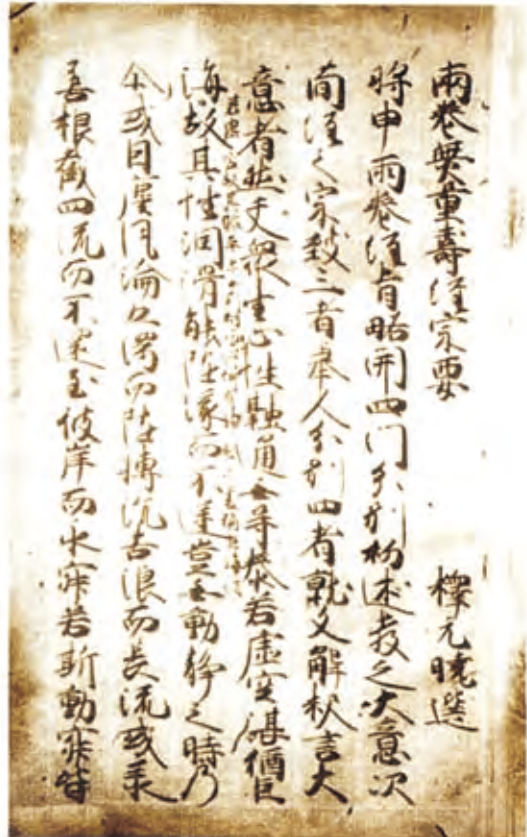 兩卷无量壽經宗要 釋元曉選
將申兩卷經旨略開四門分別初述教之大意次
簡經之宗致三者舉人分別四者就文解釋言大
意者然夫衆生心性融通無㝵泰若虛空湛猶巨
海故其性潤滑能隨緣而不逆豈無動静之時乃
尒或因塵風淪五濁而隨轉沈苦浪而長流或承
善根截四流而不還至彼岸而永寂若斯動寂皆